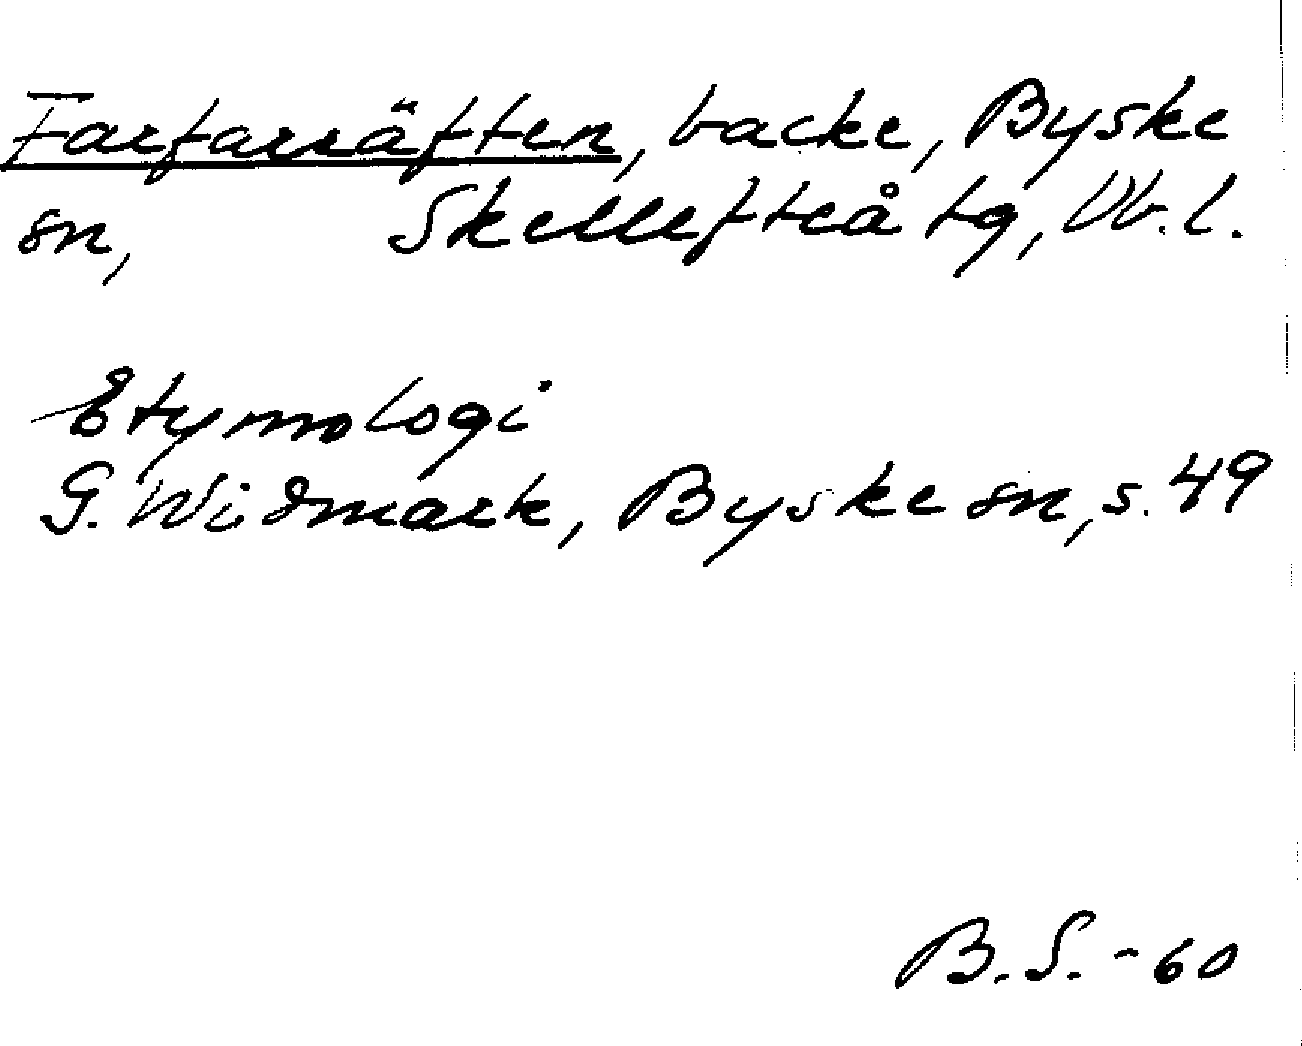 Farfarräften, backe, Byske
sn, Skellefteå tg, Vb. l.
Etymologi
G. Widmark, Byske sn, s. 49
B.S. - 60